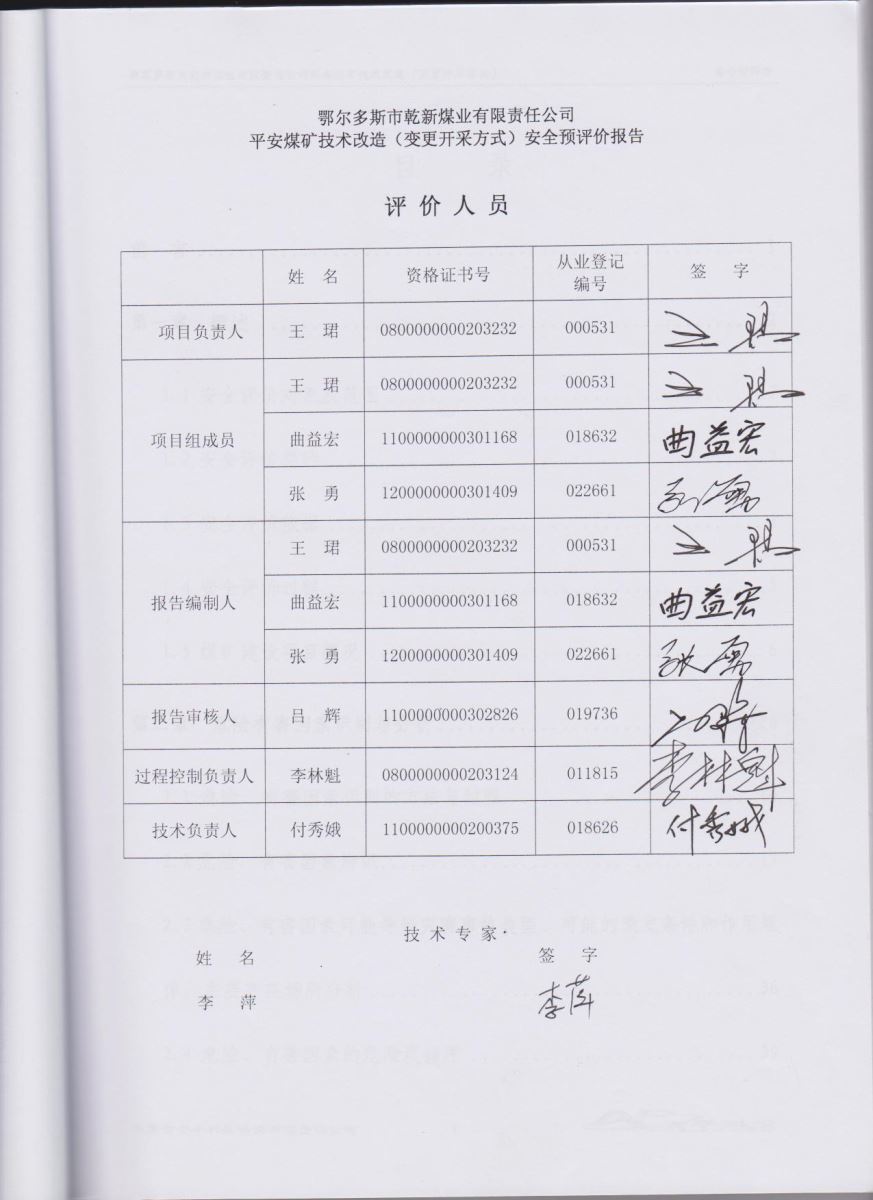 鄂尔多斯市乾新煤业有限责任公司
平安煤矿技术改造（变更开采方式）安全预评价报告
评价人员
姓 名 资格证书号 从业登记编号 签 字
项目负责人 王 珺 0800000000203232 000531 王珺
项目组成员 王 珺 0800000000203232 000531 王珺
曲益宏 1100000000301168 018632 曲益宏
张 勇 1200000000301409 022661 张勇
报告编制人 王 珺 0800000000203232 000531 王珺
曲益宏 1100000000301168 018632 曲益宏
张 勇 1200000000301409 022661 张勇
报告审核人 吕 辉 1100000000302826 019736 吕辉
过程控制负责人 李林魁 0800000000203124 011815 李林魁
技术负责人 付秀娥 1100000000200375 018626 付秀娥
技术专家
姓 名 签 字
李 萍 李萍